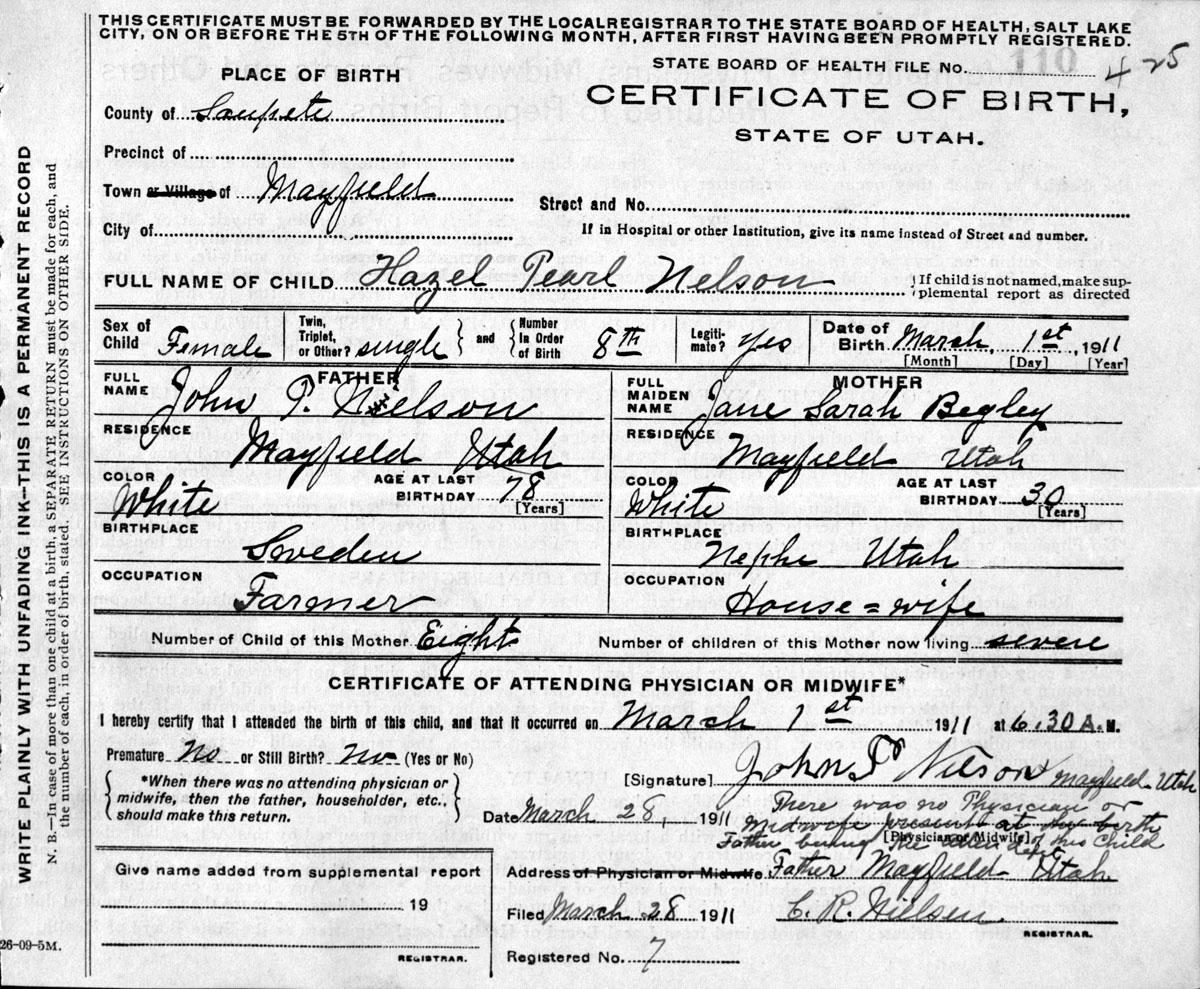 THIS CERTIFICATE MUST BE FORWARDED BY THE LOCAL REGISTRAR TO THE STATE BOARD OF HEALTH, SALT LAKE
CITY, ON OR BEFORE THE 5TH OF THE FOLLOWING MONTH, AFTER FIRST HAVING BEEN PROMPTLY REGISTERED.
STATE BOARD OF HEALTH FILE No. 110 425
PLACE OF BIRTH
CERTIFICATE OF BIRTH,
STATE OF UTAH.
County of Sanpete
Precinct of
Town or Village of Mayfield
Street and No.
City of
If in Hospital or other Institution, give its name instead of Street and number.
FULL NAME OF CHILD Hazel Pearl Nelson
If child is not named, make sup-
plemental report as directed
Sex of Child Female Twin, Triplet, or Other? single and Number in Order of Birth 8th Legiti-mate? yes Date of Birth March, 1st, 1911
[Month] [Day] [Year]
FATHER
FULL NAME John P. Nielson
RESIDENCE Mayfield Utah
COLOR White AGE AT LAST BIRTHDAY 78 [Years]
BIRTHPLACE Sweden
OCCUPATION Farmer
MOTHER
FULL MAIDEN NAME Jane Sarah Begley
RESIDENCE Mayfield Utah
COLOR White AGE AT LAST BIRTHDAY 30 [Years]
BIRTHPLACE Nephi Utah
OCCUPATION House=wife
Number of Child of this Mother Eight Number of children of this Mother now living seven
CERTIFICATE OF ATTENDING PHYSICIAN OR MIDWIFE*
I hereby certify that I attended the birth of this child, and that it occurred on March 1st 1911 at 6.30 A. M.
Premature No or Still Birth? No (Yes or No)
*When there was no attending physician or
midwife, then the father, householder, etc.,
should make this return.
[Signature] John P Nilson Mayfield Utah
Date March 28, 1911
There was no Physician or
Midwife present at the birth
[Physician or Midwife]
Father being the of this Child
Address of Physician or Midwife Father Mayfield Utah
Filed March 28 1911 C. R. Nielsen.
REGISTRAR.
Registered No. 7
Give name added from supplemental report
19
REGISTRAR.
26-09-5M.
WRITE PLAINLY WITH UNFADING INK—THIS IS A PERMANENT RECORD
N. B.—In case of more than one child at a birth, a SEPARATE RETURN must be made for each, and
the number of each, in order of birth, stated. SEE INSTRUCTIONS ON OTHER SIDE.